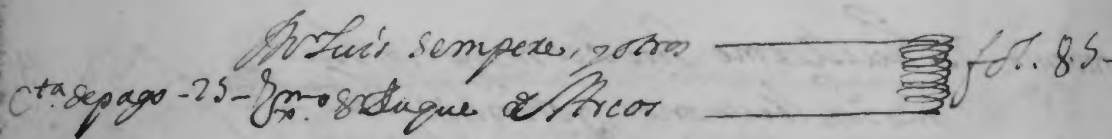 Dr. Luis Sempere, y otros fol. 85
Cta. de pago - 25 - Exmo. Sr. Duque de Arcos